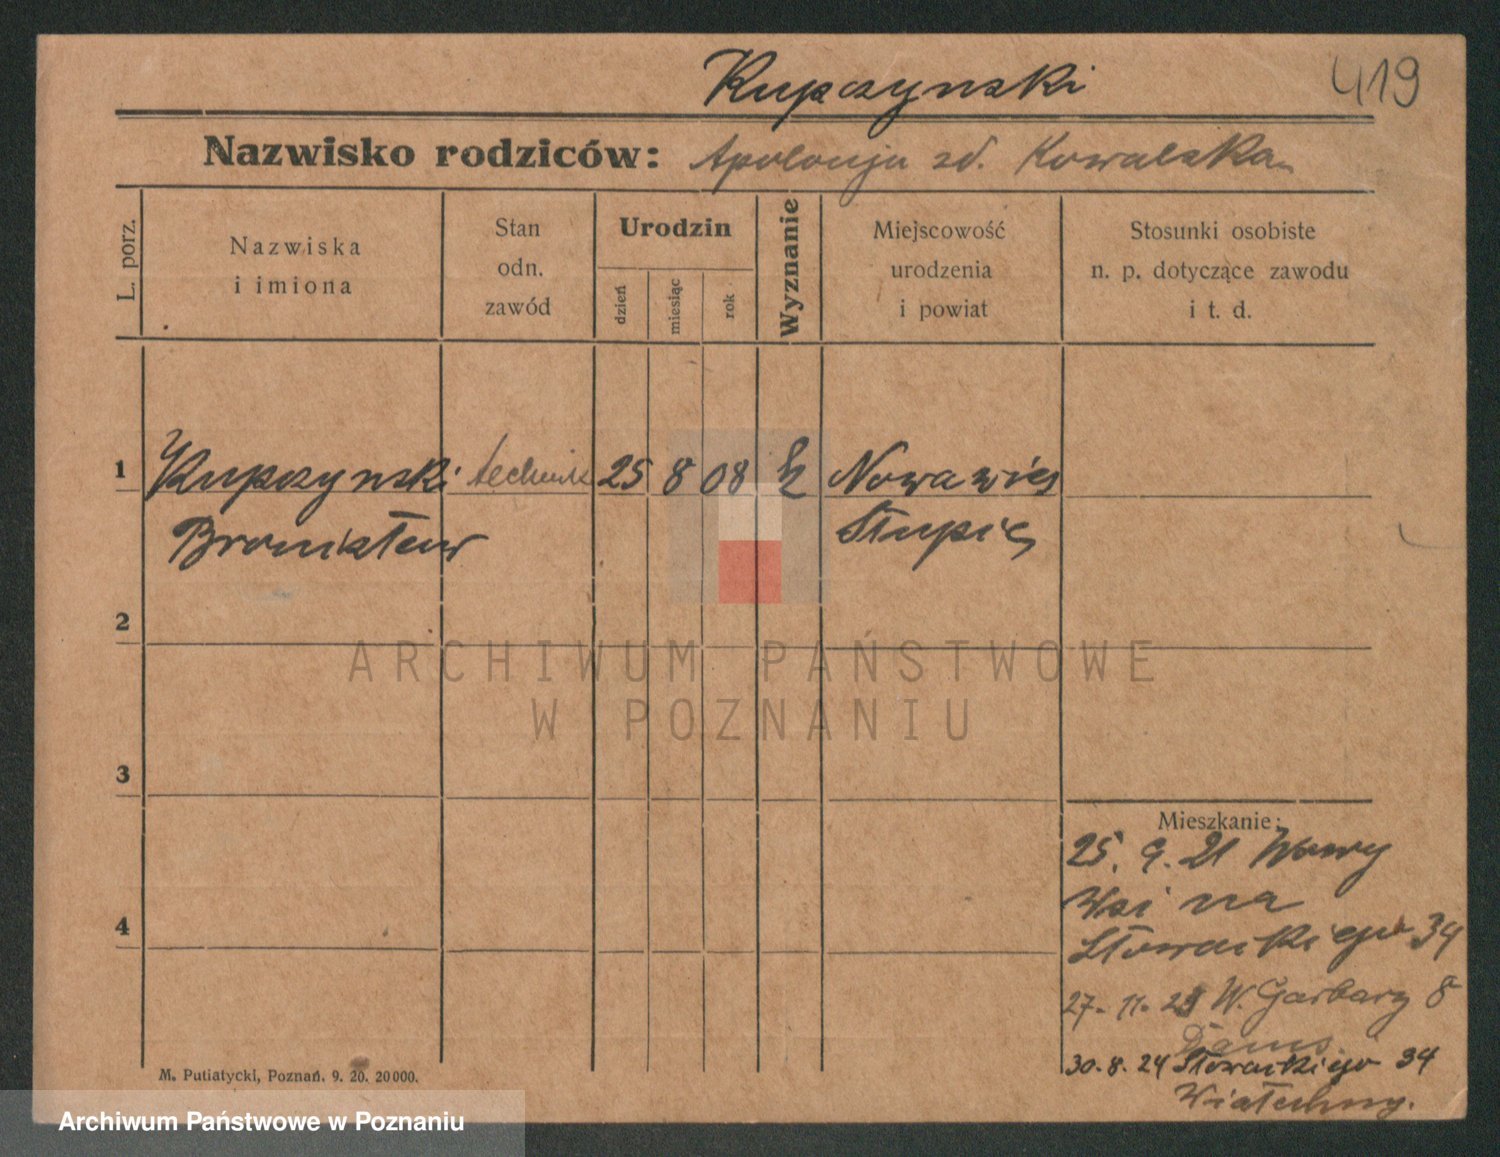 Kupczynski 419
Nazwisko rodziców: Apolonja zd. Kowalska
L. porz.
Nazwiska
i imiona
Stan
odn.
zawód
Urodzin
dzień
miesiąc
rok
Wyznanie
Miejscowość
urodzenia
i powiat
Stosunki osobiste
n. p. dotyczące zawodu
i t. d.
1 Kupczynski technik 25 8 08 k Nowawieś
Bronisław Słupię
2
ARCHIWUM PAŃSTWOWE
W POZNANIU
3
Mieszkanie:
25. 9. 21 Nowey
Wsi na
4 Słowackiego 34
27. 11. 23 W. Garbary 8
30. 8. 24 Słowackiego 34
M. Putiatycki, Poznań. 9. 20. 20000.
Archiwum Państwowe w Poznaniu